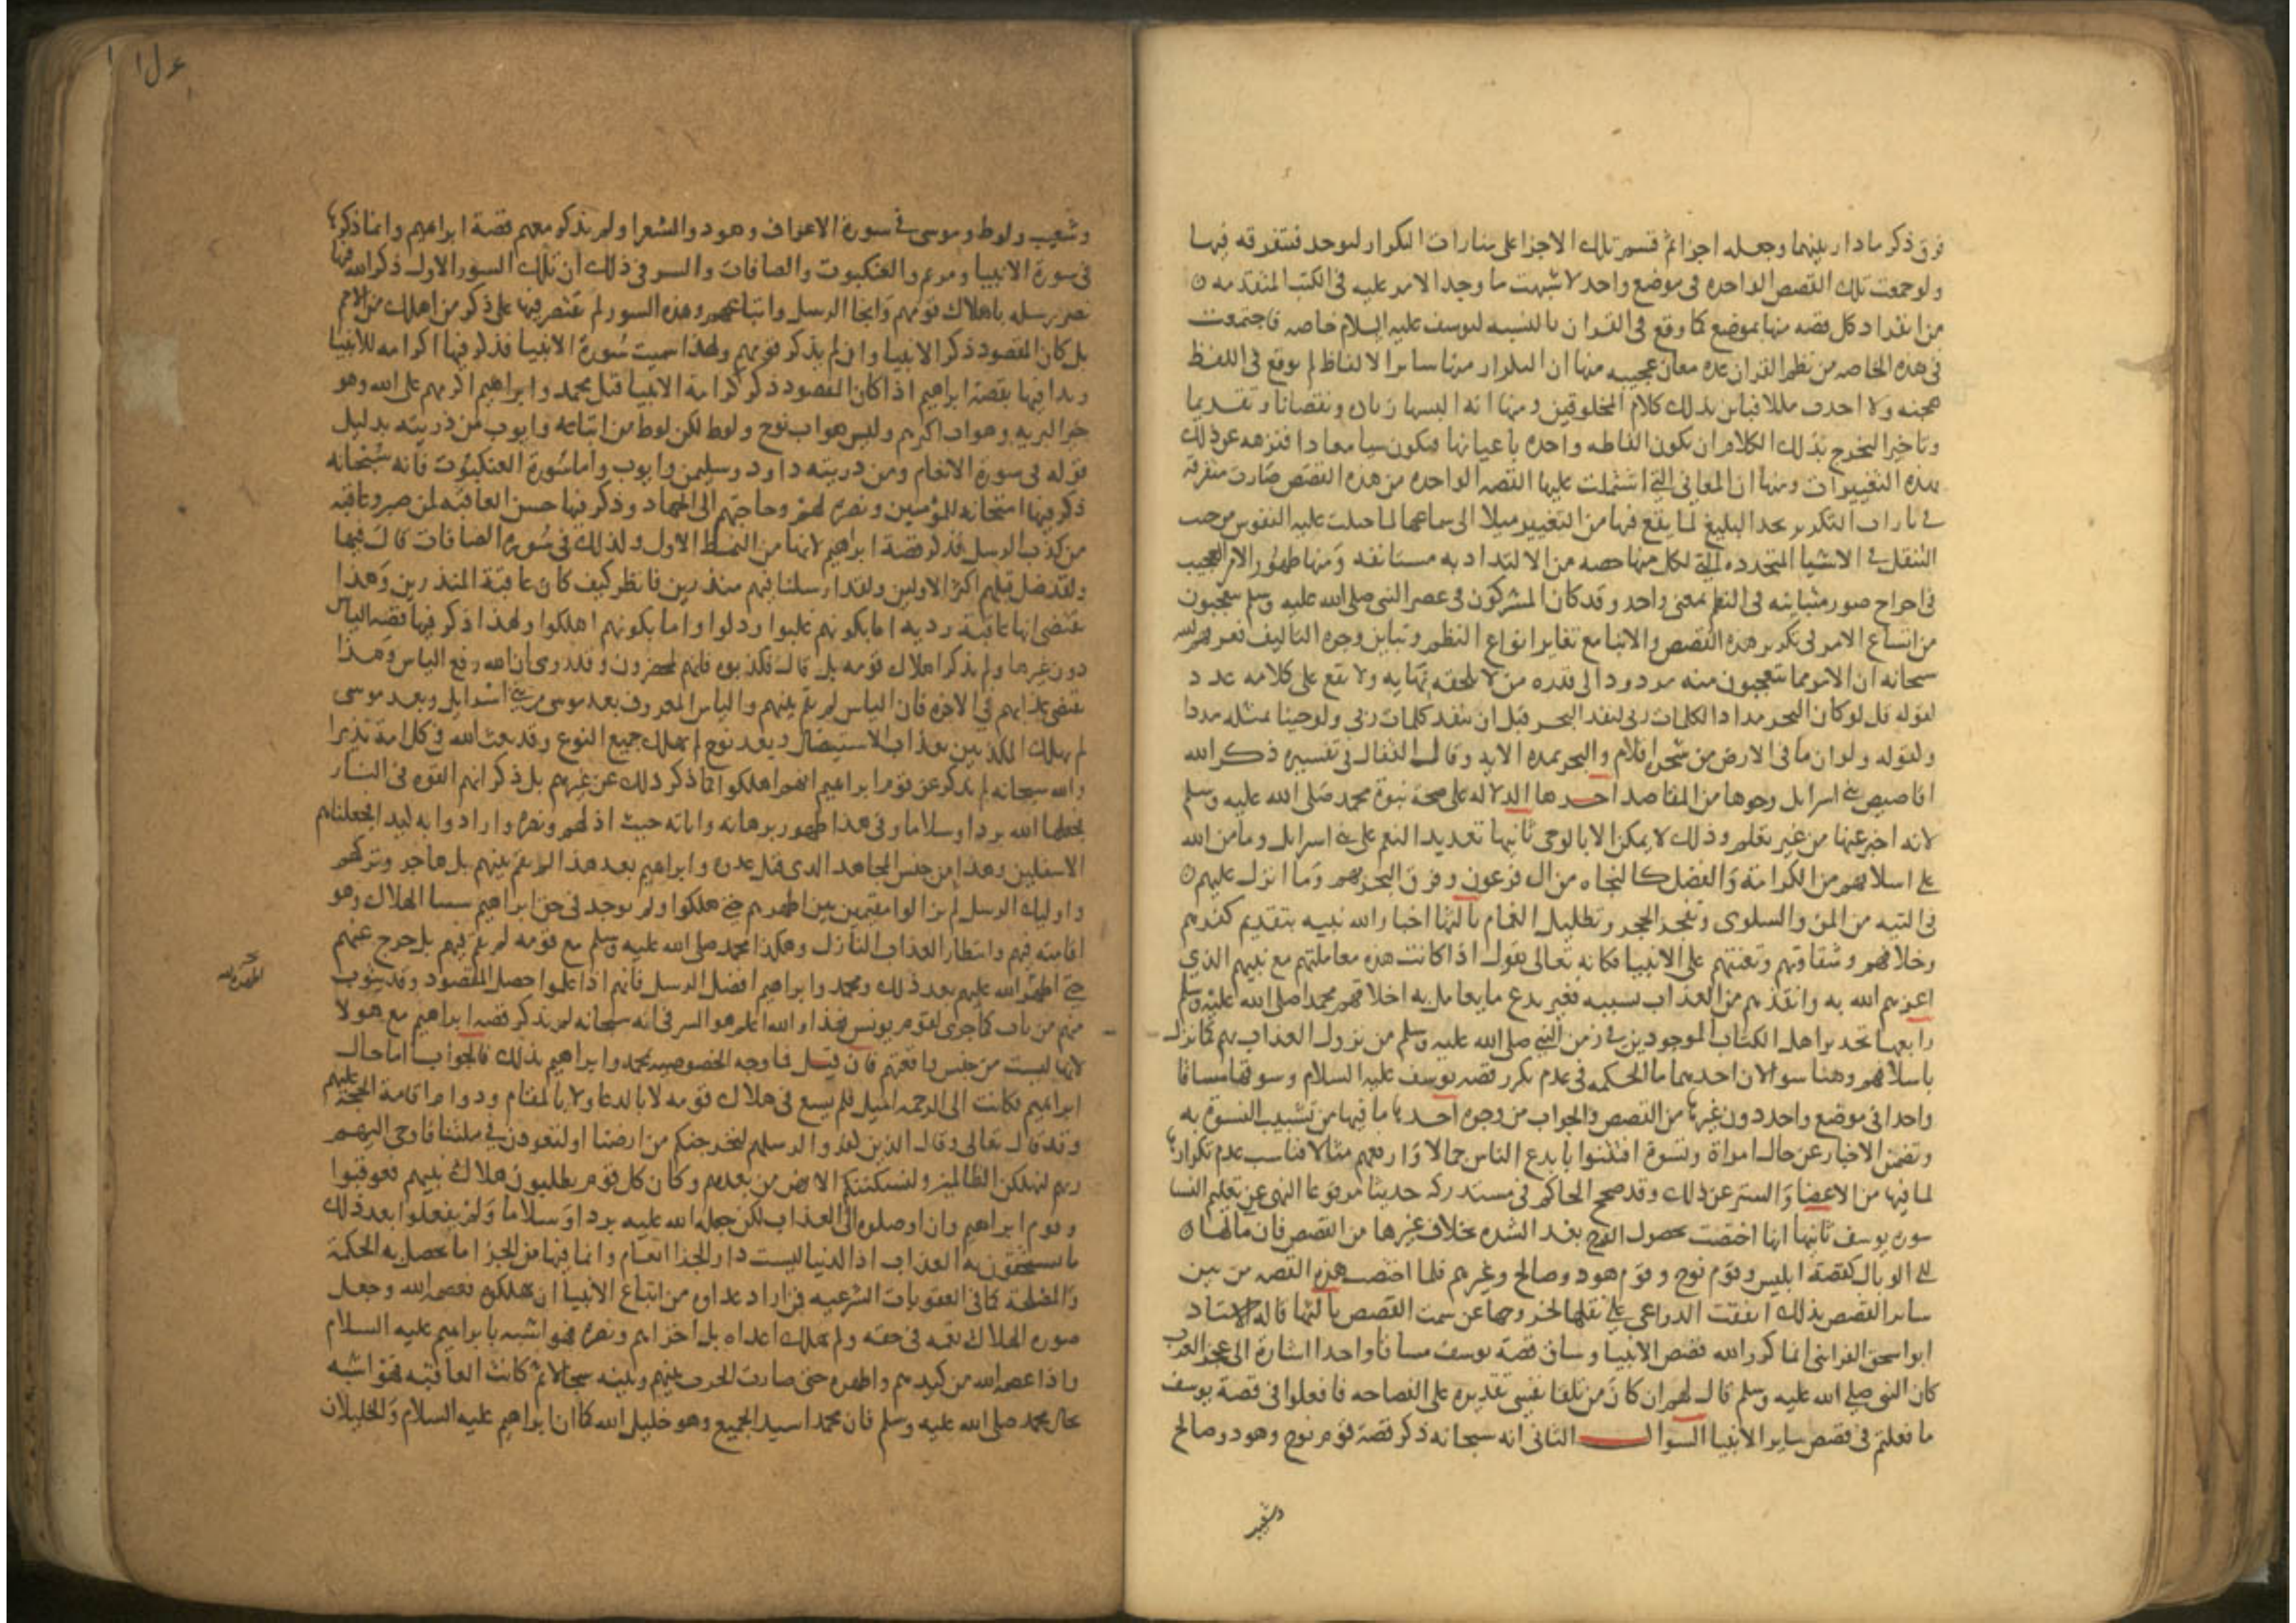 فرق ذكر ما دار بينهما وجعله اجزا ثم قسم تلك الاجزا على تارات التكرار لتوجد متفرقه فيها
ولو جمعت تلك القصص الواحده في موضع واحد لاشبهت ما وجد الامر عليه في الكتب المتقدمه
من انفراد كل قصه منها بموضع كما وقع في القران بالنسبه ليوسف عليه السلام خاصه فاجتمعت
في هذه الخاصه من نظم القران عده معان عجيبه منها ان التكرار فيها مع ساير الالفاظ لم يوقع في اللفظ
هجنه ولا احدث مللا فباين بذلك كلام المخلوقين ومنها انه البسها زياده ونقصانا وتقديما
وتاخيرا ليخرج بذلك الكلام ان تكون الفاظه واحده باعيانها فيكون شيا معادا فنزهه عن ذلك
بهذه التغييرات ومنها ان المعاني التي اشتملت عليها القصه الواحده من هذه القصص صارت متفرقة
في تارات التكرير يجد البليغ لما يقع فيها من التغيير ميلا الى سماعها لما جبلت عليه النفوس من حب
التنقل في الاشيا المتجدده التي لكل منها حصه من الالتذاد به مستانفه ومنها ظهور الامر العجيب
في اخراج صور متباينه في النظم بمعنى واحد وقد كان المشركون في عصر النبي صلى الله عليه وسلم يعجبون
من اتساع الامر في تكرير هذه القصص والانبا مع تغاير انواع النظم وتباين وجوه التاليف فعرفهم الله
سبحانه ان الامر مما يتعجبون منه مردود الى قدره من لا يلحقه نهايه ولا يقع على كلامه عدد
لقوله قل لو كان البحر مدادا لكلمات ربي لنفد البحر قبل ان تنفد كلمات ربي ولو جينا بمثله مددا
ولقوله ولو ان ما في الارض من شجره اقلام والبحر يمده الايه وقال القفال في تفسيره ذكر الله
اقاصيص بني اسرايل وجوها من المقاصد احدها الدلاله على صحة نبوة محمد صلى الله عليه وسلم
لانه اخبر عنها من غير تعلم وذلك لا يمكن الا بالوحي ثانيها تعديد النعم على بني اسرايل وما من الله
على اسلافهم من الكرامة والفضل كالنجاه من ال فرعون وفرق البحر لهم وما انزل عليهم
في التيه من المن والسلوى وتفجر الحجر وتظليل الغمام ثالثها اخبار الله نبيه بتقديم كفرهم
وخلافهم وشقاوتهم وتعنتهم على الانبيا فكانه تعالى يقول اذا كانت هذه معاملتهم مع نبيهم الذي
اعزهم الله به وانقذهم من العذاب بسببه فغير بدع ما يعامل به اخلافهم محمدا صلى الله عليه وسلم
رابعها تحذير اهل الكتاب الموجودين في زمن النبي صلى الله عليه وسلم من نزول العذاب بهم كما نزل
باسلافهم وهنا سوالان احدهما ما الحكمه في عدم تكرر قصه يوسف عليه السلام وسوقها مساقا
واحدا في موضع واحد دون غيرها من القصص والجواب من وجوه احدها ما فيها من تشبيب النسوة به
وتضمن الاخبار عن حال امراة ونسوة افتتنوا بابدع الناس جمالا وارفعهم مثالا فناسب عدم تكرارها
لما فيها من الاغضا والستر عن ذلك وقد صحح الحاكم في مستدركه حديثا مرفوعا النهي عن تعليم النسا
سورة يوسف ثانيها انها اختصت بحصول الفرج بعد الشده بخلاف غيرها من القصص فان مالها
الى الوبال كقصة ابليس وقوم نوح وقوم هود وصالح وغيرهم فلما اختصت هذه القصه من بين
ساير القصص بذلك اتفقت الدواعي على نقلها لخروجها عن سمت القصص ثالثها قاله الاستاد
ابو اسحق الفرايني انما كرر الله قصص الانبيا وساق قصة يوسف مساقا واحدا اشارة الى عجز العرب
كان النبي صلى الله عليه وسلم قال لهم ان كان من تلقا نفسي تقديره على الفصاحه فافعلوا في قصة يوسف
ما فعلتم في قصص ساير الانبيا السوال الثاني انه سبحانه ذكر قصة قوم نوح وهود وصالح
وشعيب
وشعيب ولوط وموسى في سورة الاعراف وهود والشعرا ولم يذكر معهم قصة ابراهيم وانما ذكرها
في سورة الانبيا ومريم والعنكبوت والصافات والسر في ذلك ان تلك السور الاول ذكر الله فيها
نصر رسله باهلاك قومهم وانجا الرسل واتباعهم وهذه السور لم يقتصر فيها على ذكر من اهلك من الامم
بل كان المقصود ذكر الانبيا وان لم يذكر قومهم ولهذا سميت سورة الانبيا فذكر فيها اكرامه للانبيا
وبدا فيها بقصة ابراهيم اذ كان المقصود ذكر كرامة الانبيا قبل محمد وابراهيم اكرمهم على الله وهو
خير البريه وهو اب اكثرهم وليس هو اب نوح ولوط لكن لوط من اتباعه وايوب من ذريته بدليل
قوله في سورة الانعام ومن ذريته داود وسليمن وايوب واما سورة العنكبوت فانه سبحانه
ذكر فيها امتحانه للمؤمنين ونصره لهم وحاجتهم الى الجهاد وذكر فيها حسن العاقبه لمن صبر وعاقبه
من كذب الرسل فذكر قصة ابراهيم لانها من النمط الاول وكذلك في سورة الصافات قال فيها
ولقد ضل قبلهم اكثر الاولين ولقد ارسلنا فيهم منذرين فانظر كيف كان عاقبة المنذرين وهذا
يقتضي انها عاقبة رديه اما بكونهم غلبوا وذلوا واما بكونهم اهلكوا ولهذا ذكر فيها قصه الياس
دون غيرها ولم يذكر اهلاك قومه بل قال فكذبوه فانهم لمحضرون وقد روي ان الله رفع الياس وهذا
يقتضي عذابهم في الاخره فان الياس لم يقم بينهم والياس المعروف بعد موسى من بني اسرايل وبعد موسى
لم يهلك المكذبين بعذاب الاستيصال وبعد نوح لم يهلك جميع النوع وقد بعث الله في كل امة نذيرا
والله سبحانه لم يذكر عن قوم ابراهيم انهم اهلكوا كما ذكر ذلك عن غيرهم بل ذكر انهم القوه في النار
فجعلها الله بردا وسلاما وفي هذا ظهور برهانه واياته حيث اذلهم ونصره وارادوا به كيدا فجعلناهم
الاسفلين وهذا من جنس المجاهد الذي قتل عدوه وابراهيم بعد هذا لم يقم بينهم بل هاجر وتركهم
واوليك الرسل لم يزالوا مقيمين بين اظهرهم حتى هلكوا ولم يوجد في حق ابراهيم سبب الهلاك وهو
اقامته فيهم وانتظار العذاب النازل وهكذا محمد صلى الله عليه وسلم مع قومه لم يقم فيهم بل خرج عنهم
حتى اظهره الله عليهم بعد ذلك ومحمد وابراهيم افضل الرسل فانهم اذا علوا حصل المقصود وقد يتوب
منهم من تاب كما جرى لقوم يونس فهذا والله اعلم هو السر في انه سبحانه لم يذكر قصه ابراهيم مع هولا
لانها ليست من جنس واقعتهم فان قيل فما وجه الخصوصيه بمحمد وابراهيم بذلك فالجواب اما حال
ابراهيم فكانت الى الرحمه اميل فلم يسع في هلاك قومه لا بالدعا ولا بالمقام ودوام اقامة الحجة عليهم
وقد قال تعالى وقال الذين كفروا لرسلهم لنخرجنكم من ارضنا او لتعودن في ملتنا فاوحى اليهم
ربهم لنهلكن الظالمين ولنسكننكم الارض من بعدهم وكان كل قوم يطلبون هلاك نبيهم فعوقبوا
وقوم ابراهيم وان اوصلوه الى العذاب لكن جعله الله عليه بردا وسلاما ولم يفعلوا بعد ذلك
ما يستحقون به العذاب اذ الدنيا ليست دار الجزا العام وانما فيها من الجزا ما تحصل به الحكمة
والمصلحة كما في العقوبات الشرعيه فمن اراد عداوه من اتباع الانبيا ان يهلكوه فعصمه الله وجعل
صورة الهلاك نعمه في حقه ولم يهلك اعداه بل اخزاهم ونصره فهو اشبه بابراهيم عليه السلام
واذا عصمه الله من كيدهم واظهره حتى صارت الحرب بينهم وبينه سجالا ثم كانت العاقبه فهو اشبه
بحال محمد صلى الله عليه وسلم فان محمدا سيد الجميع وهو خليل الله كما ان ابراهيم عليه السلام والخليلان